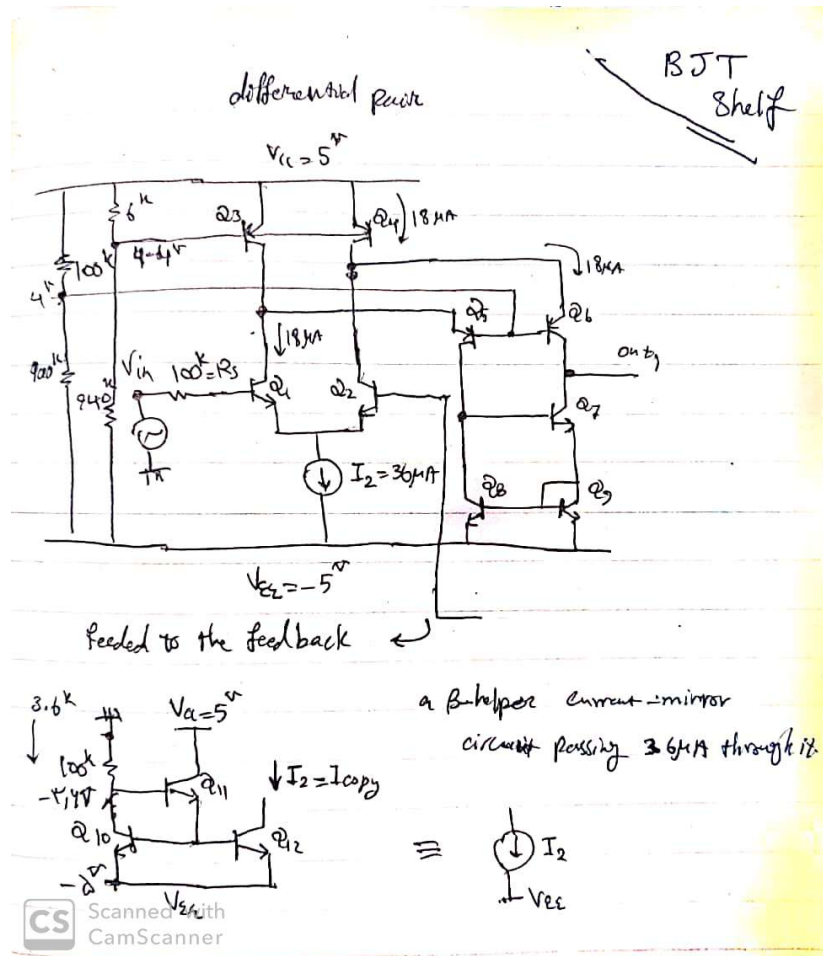 BJT
Shelf
differential pair
Vcc = 5v
6k
Q3
Q4
18 μA
100k
4.4v
18 μA
4v
Q5
Q6
18 μA
900k
Vin
100k = Rs
Q1
Q2
out,
940k
Q7
I2 = 36 μA
Q8
Q9
VEE = -5v
feeded to the feedback
3.6v
Vcc = 5v
a β-helper current-mirror
circuit passing 36 μA through it.
100k
I2 = Icopy
Q11
Q10
Q12
≡
I2
-5v
VEE
VEE
CS
Scanned with
CamScanner